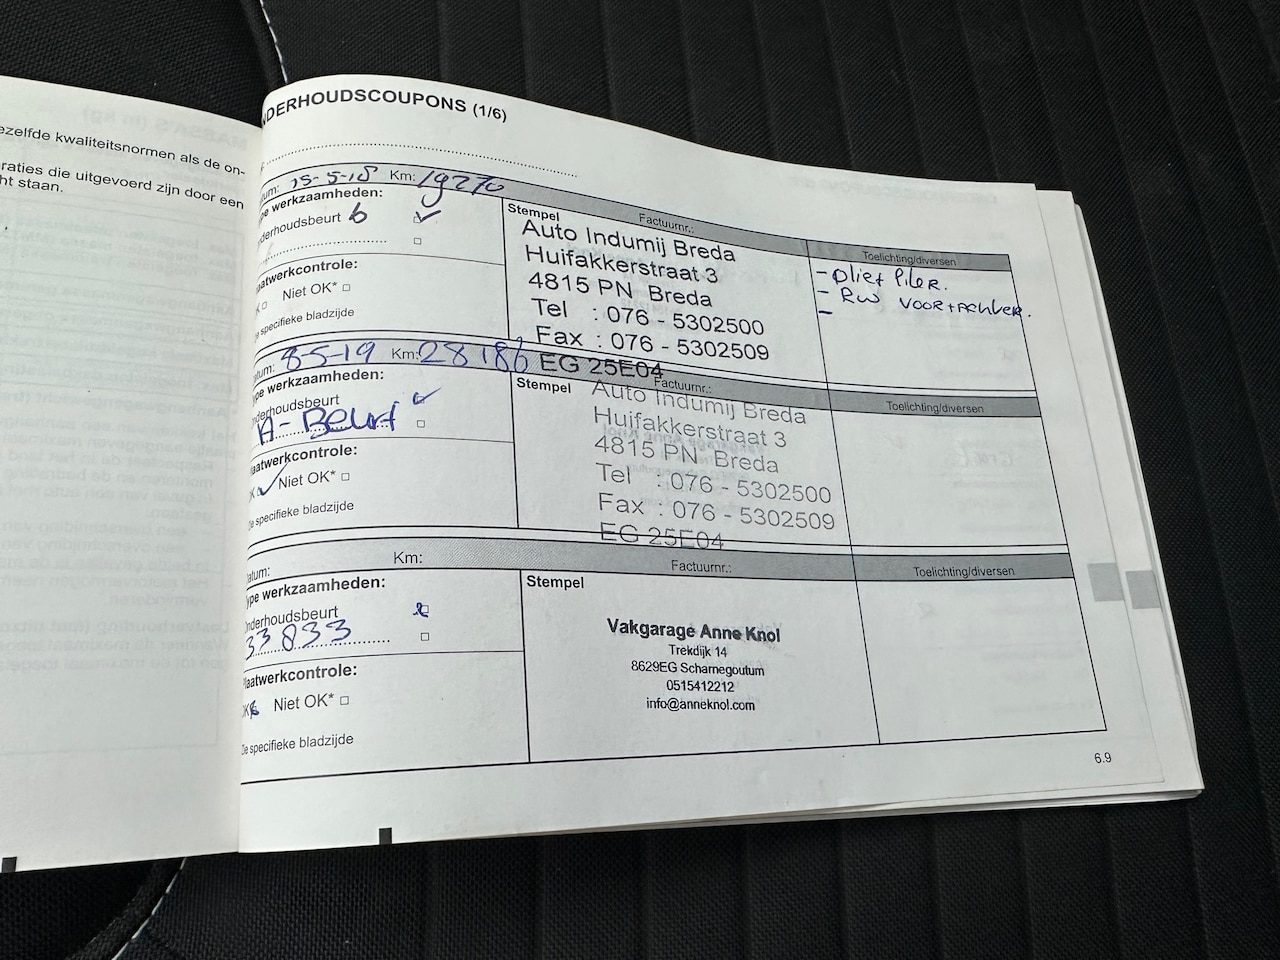 ezelfde kwaliteitsnormen als de on-
raties die uitgevoerd zijn door een
ht staan.
NDERHOUDSCOUPONS (1/6)
tum: 15-5-18 Km: 19270 Factuurnr.: Toelichting/diversen
pe werkzaamheden:
nderhoudsbeurt b
aatwerkcontrole:
Niet OK*
e specifieke bladzijde
Stempel
Auto Indumij Breda
Huifakkerstraat 3
4815 PN Breda
Tel : 076 - 5302500
Fax : 076 - 5302509
EG 25E04
- oliefilter.
- RW voor+achter.
-
atum: 8-5-19 Km: 28186 Factuurnr.: Toelichting/diversen
pe werkzaamheden:
nderhoudsbeurt
A-Beurt
aatwerkcontrole:
K Niet OK*
e specifieke bladzijde
Stempel
Auto Indumij Breda
Huifakkerstraat 3
4815 PN Breda
Tel : 076 - 5302500
Fax : 076 - 5302509
EG 25E04
atum: Km: Factuurnr.: Toelichting/diversen
ype werkzaamheden:
Onderhoudsbeurt
33833
laatwerkcontrole:
OK Niet OK*
Zie specifieke bladzijde
Stempel
Vakgarage Anne Knol
Trekdijk 14
8629EG Scharnegoutum
0515412212
info@anneknol.com
6.9